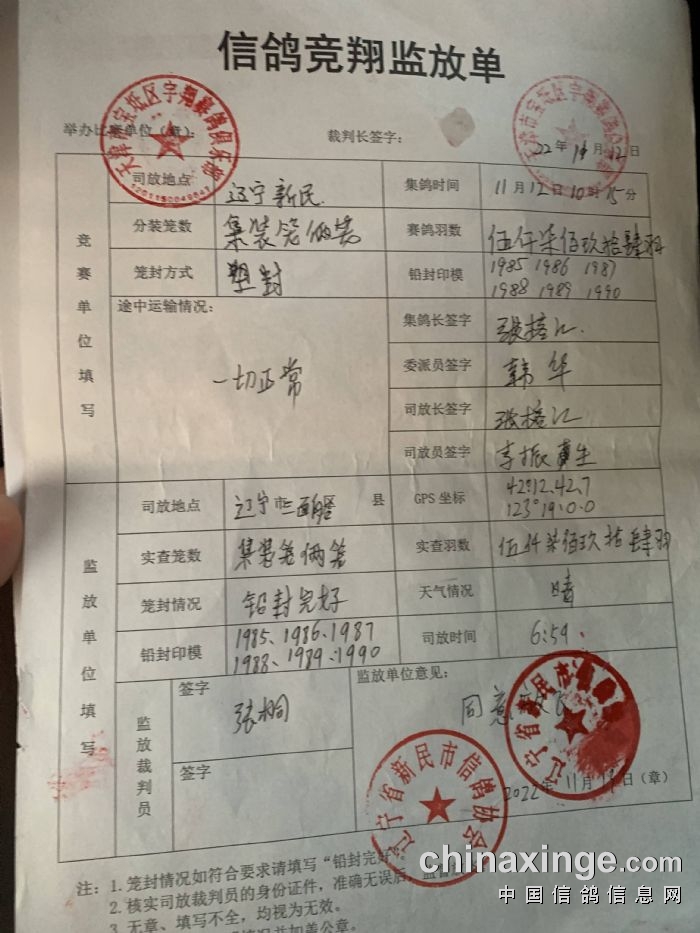 信鸽竞翔监放单
举办比赛单位（章）：
裁判长签字：
22年11月12日
天津市宝坻区宇翔赛鸽俱乐部
竞赛单位填写
司放地点 辽宁新民 集鸽时间 11月12日10时15分
分装笼数 集装笼俩笼 赛鸽羽数 伍仟柒佰玖拾肆羽
笼封方式 塑封 铅封印模 1985 1986 1987
1988 1989 1990
途中运输情况： 集鸽长签字
一切正常 委派员签字 韩华
司放长签字
司放员签字
监放单位填写
司放地点 辽宁市 县 GPS坐标 42°12.42.7
123°19.0.0
实查笼数 集装笼俩笼 实查羽数 伍仟柒佰玖拾肆羽
笼封情况 铅封完好 天气情况 晴
铅封印模 1985、1986、1987
1988、1989、1990
司放时间 6:59
监放裁判员
签字 张桐
签字
监放单位意见：
同意
辽宁省新民市信鸽协会
辽宁省新民市
2022年11月13日（章）
注：1.笼封情况如符合要求请填写“铅封完好”
2.核实司放裁判员的身份证件，准确无误后，
3.无章、填写不全，均视为无效。
chinaxinge.com
中国信鸽信息网